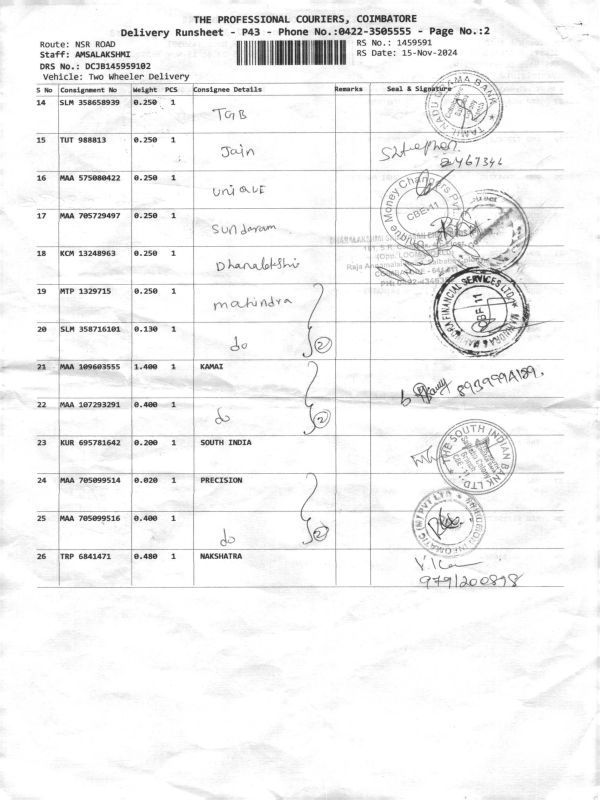 THE PROFESSIONAL COURIERS, COIMBATORE
Delivery Runsheet - P43 - Phone No.:0422-3505555 - Page No.:2
Route: NSR ROAD RS No.: 1459591
Staff: AMSALAKSHMI RS Date: 15-Nov-2024
DRS No.: DCJB145959102
Vehicle: Two Wheeler Delivery
S No Consignment No Weight PCS Consignee Details Remarks Seal & Signature
14 SLM 358658939 0.250 1 TGB
15 TUT 988813 0.250 1 Jain
16 MAA 575080422 0.250 1 UNIQUE
17 MAA 705729497 0.250 1 Sundaram
18 KCM 13248963 0.250 1 Dhanalakshmi
19 MTP 1329715 0.250 1 mahindra
20 SLM 358716101 0.130 1 do 2
21 MAA 109603555 1.400 1 KAMAI
22 MAA 107293291 0.400 1 do 2
23 KUR 695781642 0.200 1 SOUTH INDIA
24 MAA 705099514 0.020 1 PRECISION
25 MAA 705099516 0.400 1 do 2
26 TRP 6841471 0.480 1 NAKSHATRA
Unique Money Changers Pvt.
CBE-11
FINANCIAL SERVICES LTD.
CBE 11
THE SOUTH INDIAN BANK LTD.
9791200898